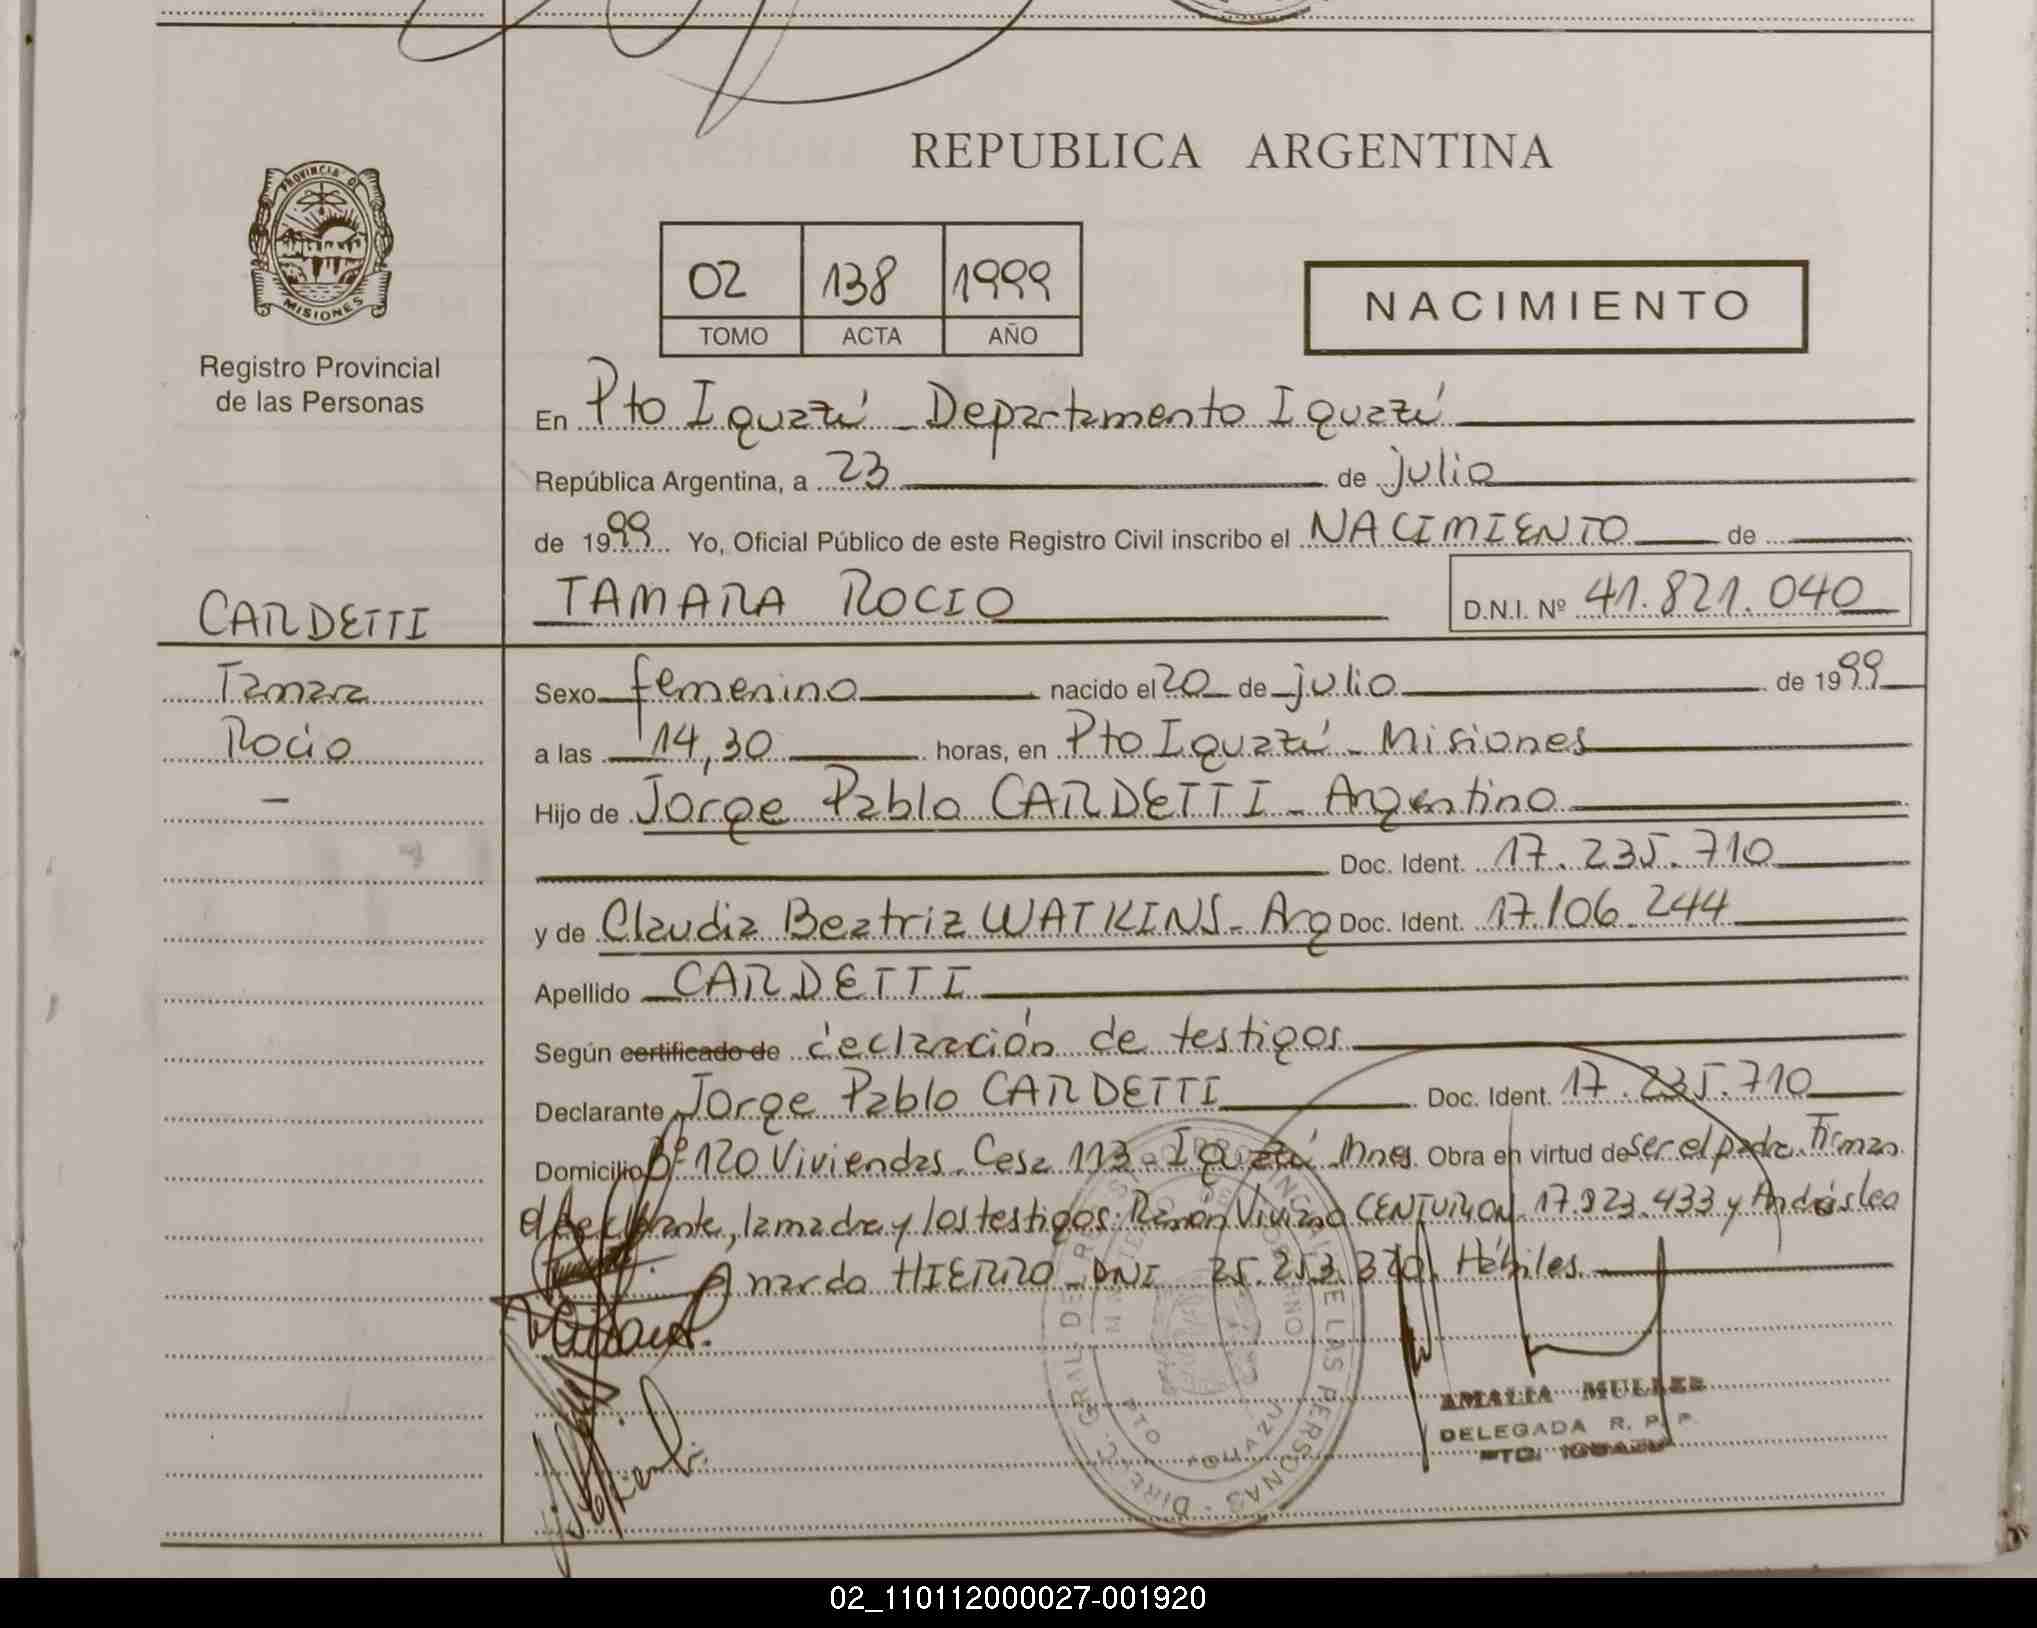 REPUBLICA ARGENTINA
PROVINCIA DE
MISIONES
Registro Provincial
de las Personas
02 138 1999
TOMO ACTA AÑO
NACIMIENTO
En Pto Iguazú - Departamento Iguazú
República Argentina, a 23 de julio
de 1999 Yo, Oficial Público de este Registro Civil inscribo el NACIMIENTO de
CARDETTI
TAMARA ROCIO
D.N.I. Nº 41.821.040
Tamara
Rocio
-
Sexo femenino nacido el 20 de julio de 1999
a las 14,30 horas, en Pto Iguazú - Misiones
Hijo de Jorge Pablo CARDETTI - Argentino
Doc. Ident. 17.235.710
y de Claudia Beatriz WATKINS - Arg Doc. Ident. 17.106.244
Apellido CARDETTI
Según certificado de declaración de testigos
Declarante Jorge Pablo CARDETTI Doc. Ident. 17.235.710
Domicilio Bº 120 Viviendas. Casa 113 - Iguazú Mnes. Obra en virtud de ser el padre. Firman
el declarante, la madre y los testigos: Ramón Viviano CENTURION 17.923.433 y Andrés Leo
nardo HIERRO - DNI 25.253.370. Hábiles.
DIREC. GRAL DE REGISTRO PROVINCIAL DE LAS PERSONAS
PTO IGUAZU
AMALIA MULLER
DELEGADA R. P. P.
PTO. IGUAZU
02_110112000027-001920